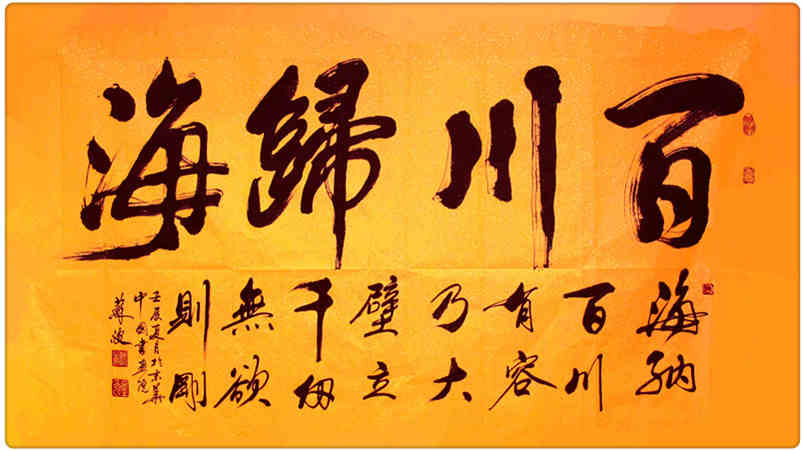 百川歸海
海納
百川
有容
乃大
壁立
千仞
無欲
則剛
壬辰夏月於京華
中國書畫院